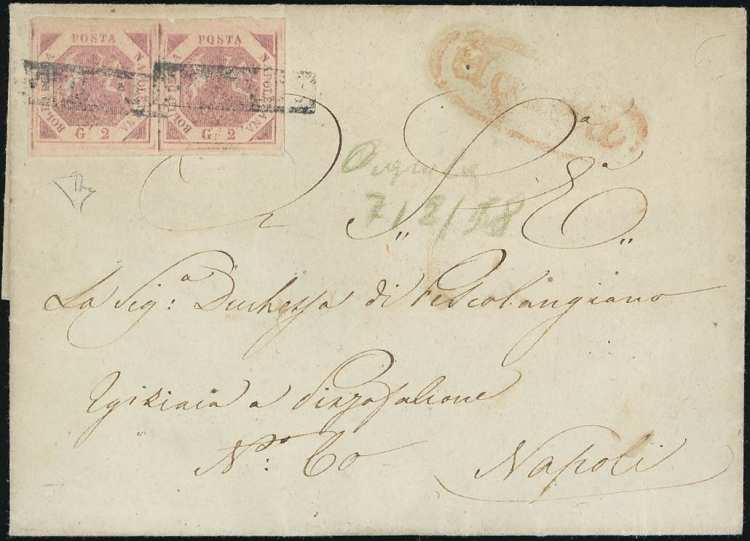 POSTA NAPOLETANA BOLLO G. 2
POSTA NAPOLETANA BOLLO G. 2
A S. E.
7/2/58
La Sig.ª Duchessa di Pescolangiano
Egiziaca a Pizzofalcone
N.º 60
Napoli